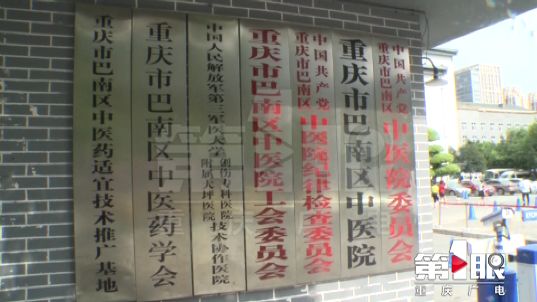 重庆市巴南区中医药适宜技术推广基地
重庆市巴南区中医药学会
中国人民解放军第三军医大学
附属大坪医院
创伤专科医院
技术协作医院
重庆市巴南区中医院工会委员会
中国共产党
重庆市巴南区
中医院纪律检查委员会
重庆市巴南区中医院
中国共产党
重庆市巴南区
中医院委员会
第1眼
重庆广电